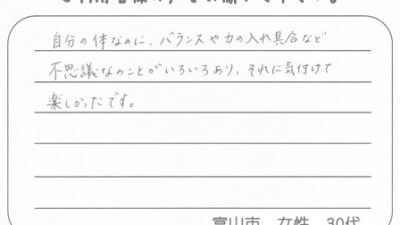 自分の体なのに、バランスや力の入れ具合など
不思議なのことがいろいろあり、それに気付けて
楽しかったです。
富山市 女性 30代